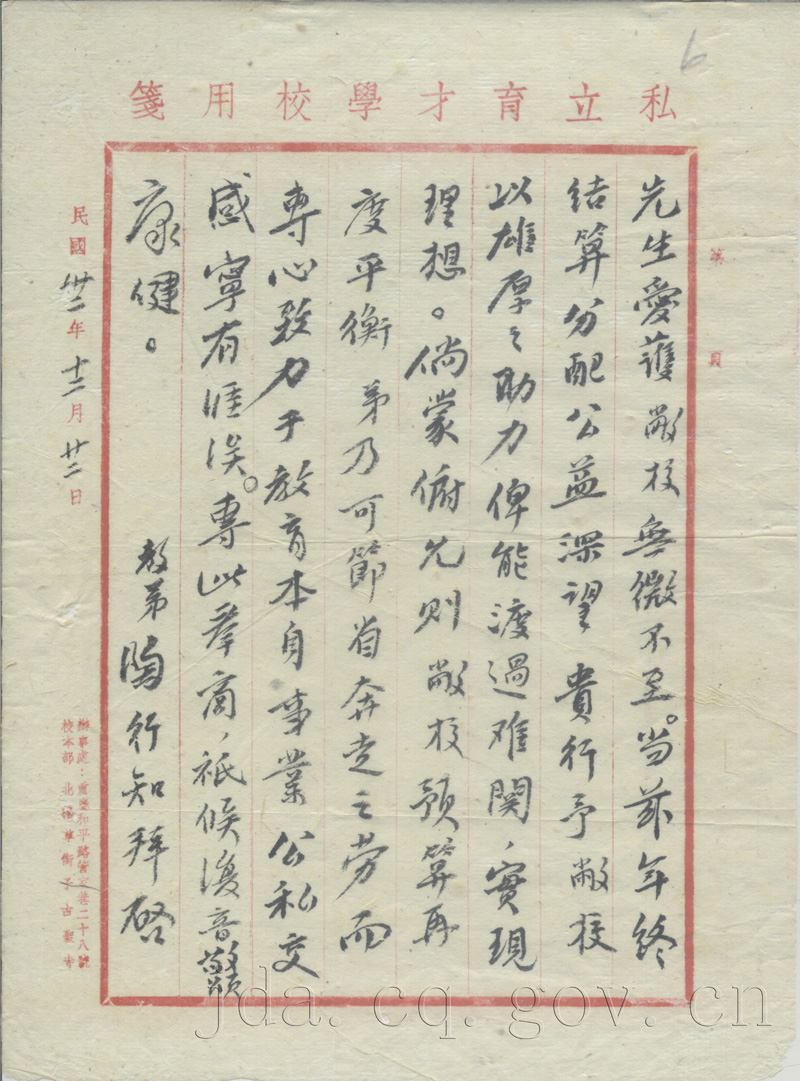 6
私立育才學校用箋
第 頁
先生愛護敝校無微不至。当茲年終
結算分配公益深望 貴行予敝校
以雄厚之助力俾能渡過难関，實現
理想。倘蒙俯允則敝校預算再
度平衡 弟乃可節省奔走之勞而
專心致力于教育本身事業公私交
感寧有涯涘。專此奉商，祇候復音並頌
康健。
教弟陶行知拜啓
民國卅二年十二月廿二日
辦事處：重慶和平路管家巷二十八號
校本部 北碚草街子古聖寺
jda.cq.gov.cn